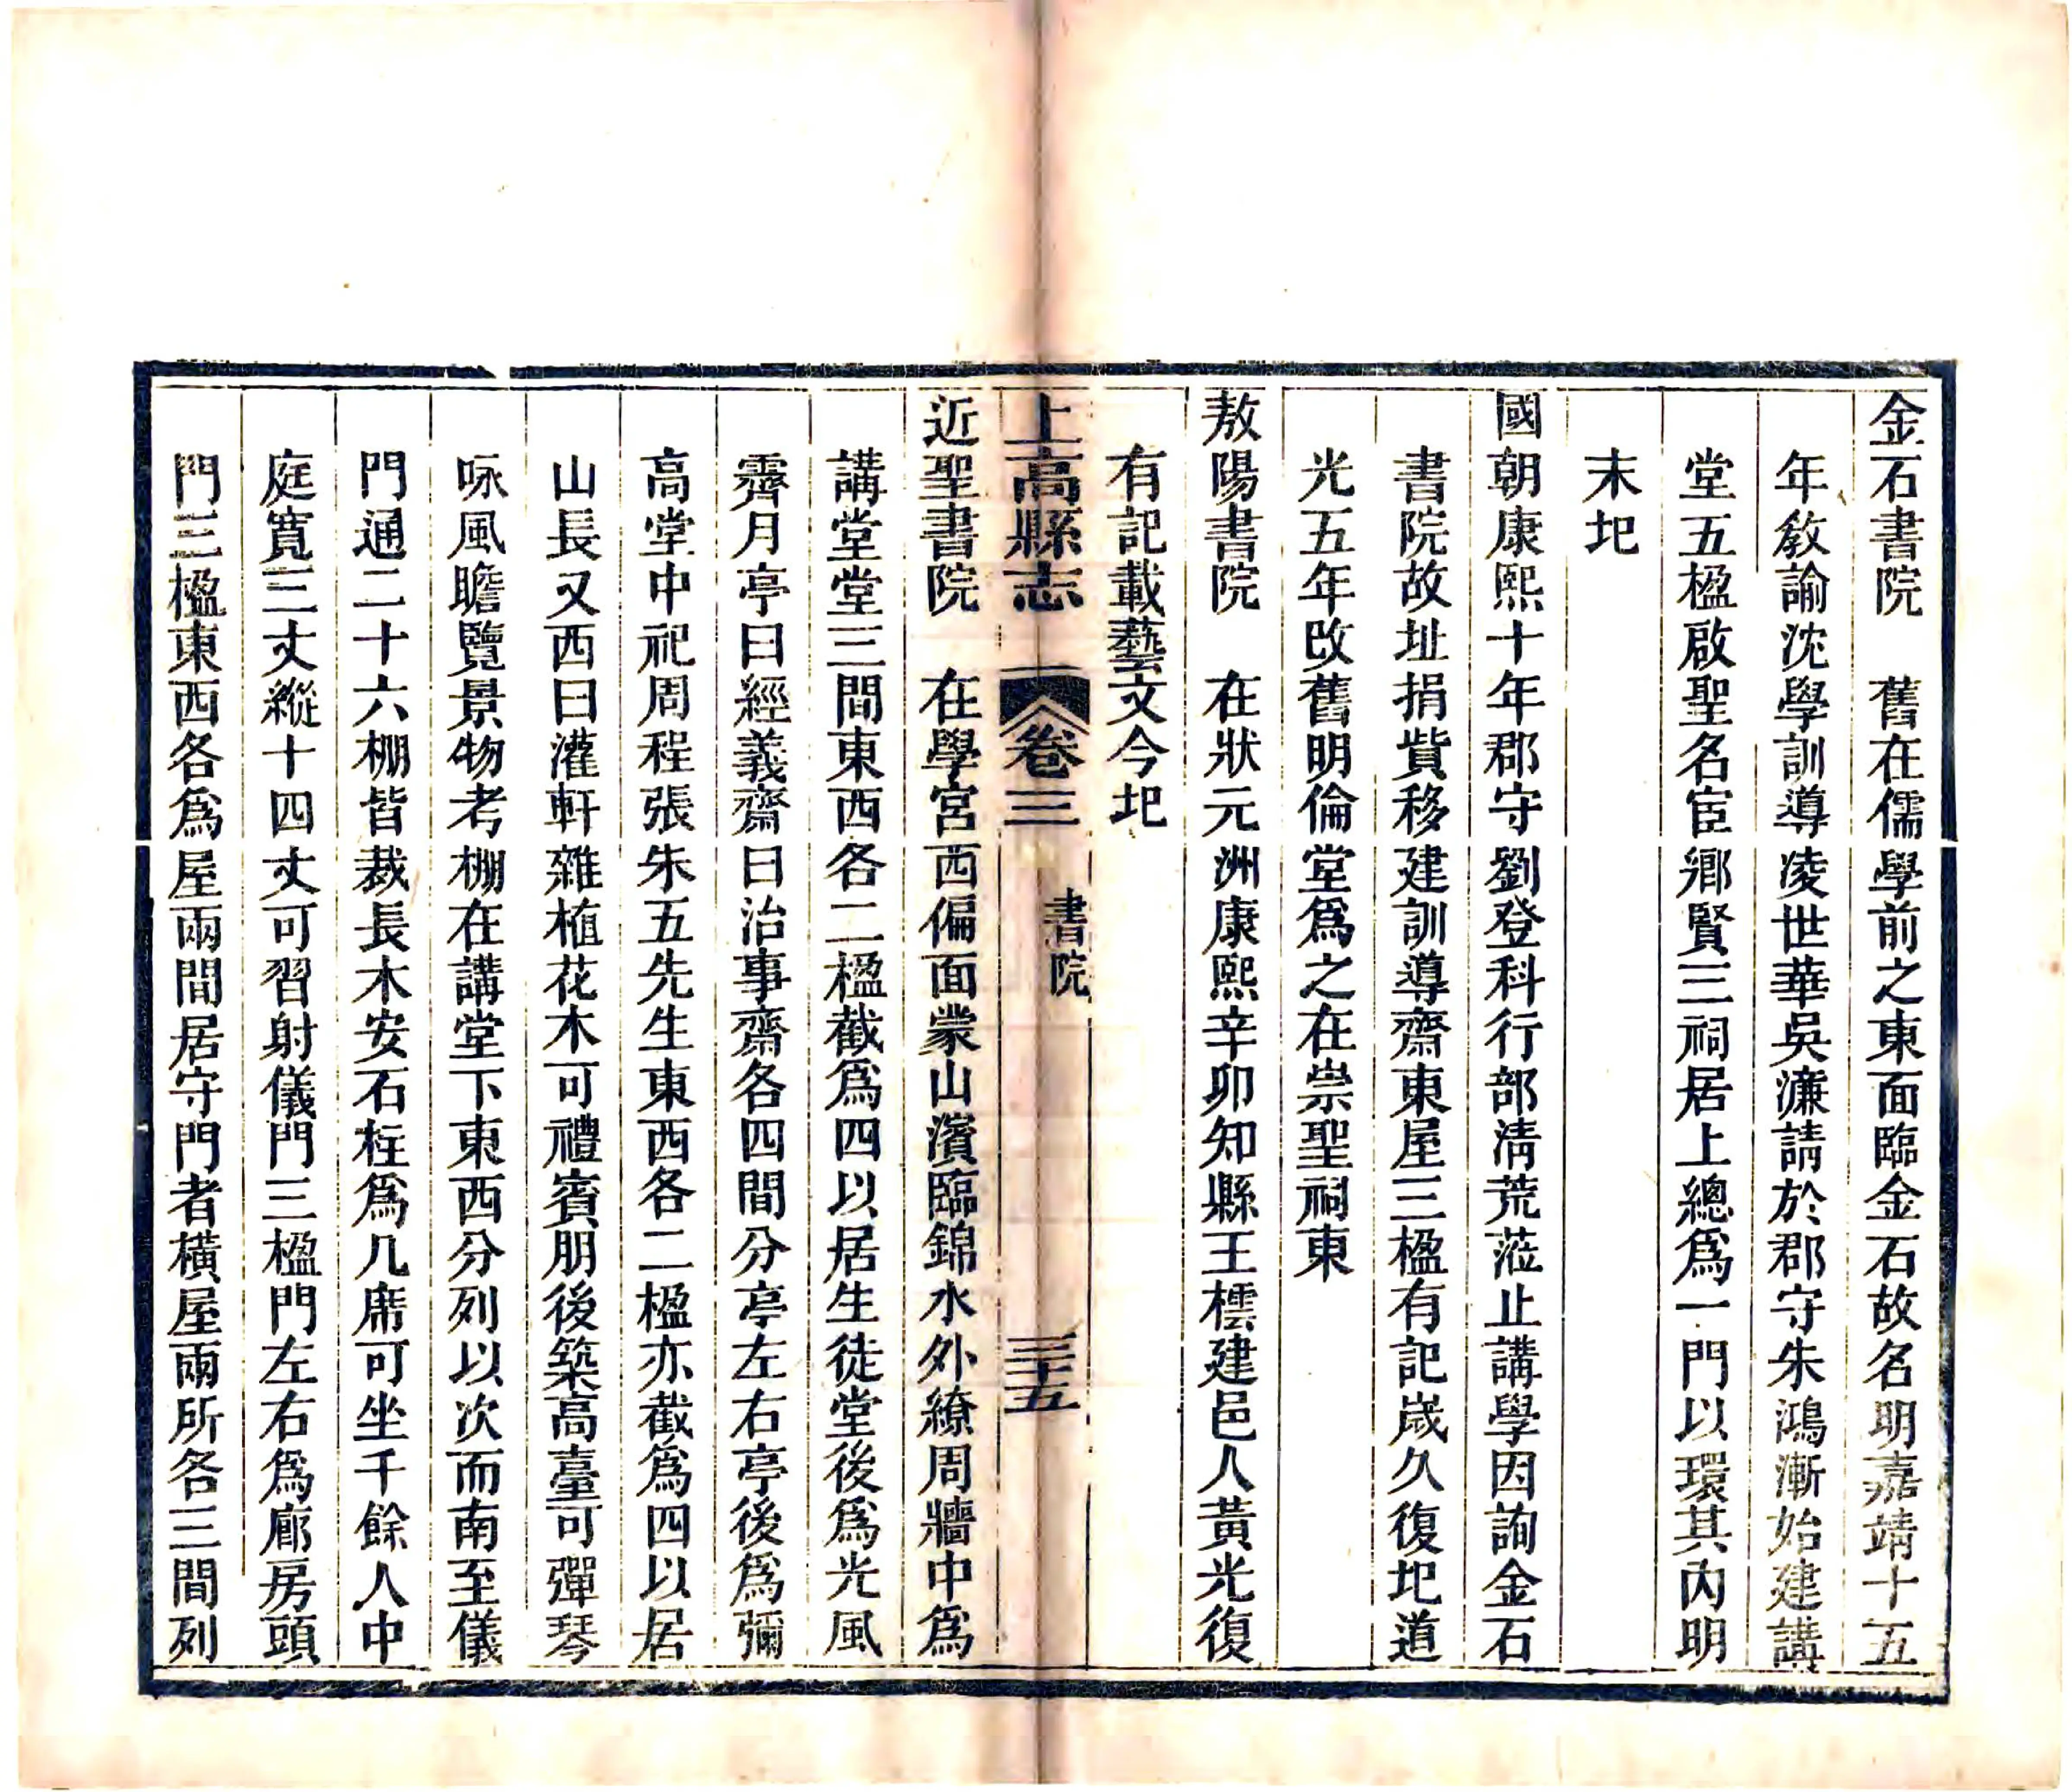 金石書院　舊在儒學前之東面臨金石故名明嘉靖十五
年敎諭沈學訓導凌世華吳濂請於郡守朱鴻漸始建講
堂五楹啟聖名宦鄉賢三祠居上總爲一門以環其內明
末圯
國朝康熙十年郡守劉登科行部淸荒蒞止講學因詢金石
書院故址捐貲移建訓導齋東屋三楹有記歲久復圯道
光五年改舊明倫堂爲之在崇聖祠東
敖陽書院　在狀元洲康熙辛卯知縣王橒建邑人黃光復
有記載藝文今圯
上高縣志　卷三　書院　三十五
近聖書院　在學宮西偏面蒙山濱臨錦水外繚周牆中爲
講堂堂三間東西各二楹截爲四以居生徒堂後爲光風
霽月亭曰經義齋曰治事齋各四間分亭左右亭後爲彌
高堂中祀周程張朱五先生東西各二楹亦截爲四以居
山長又西曰灌軒雜植花木可禮賓朋後築高臺可彈琴
咏風瞻覽景物考棚在講堂下東西分列以次而南至儀
門通二十六棚皆裁長木安石柱爲几席可坐千餘人中
庭寬三丈縱十四丈可習射儀門三楹門左右爲廊房頭
門三楹東西各爲屋兩間居守門者橫屋兩所各三間列